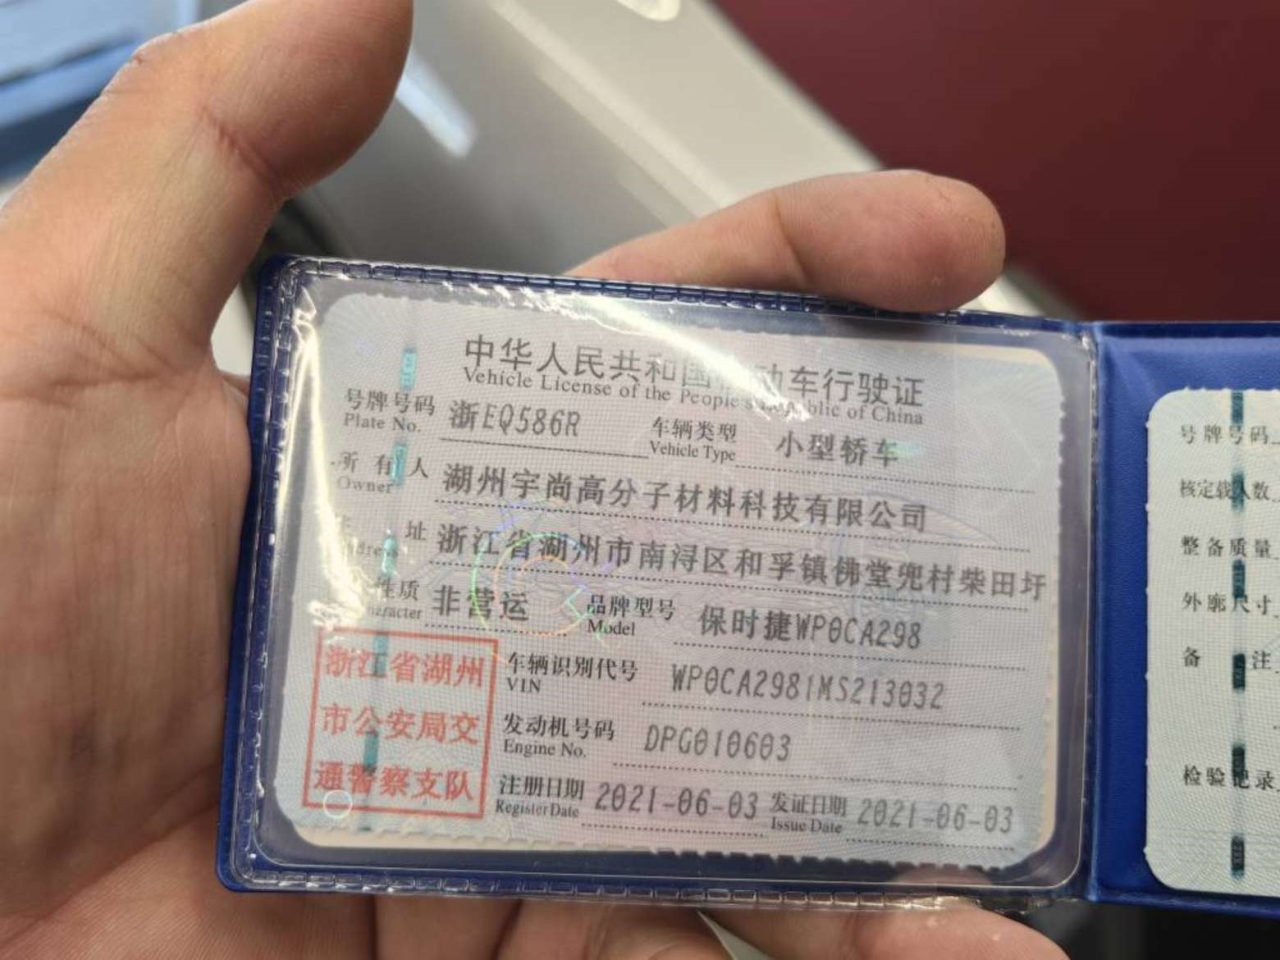 中华人民共和国机动车行驶证
Vehicle License of the People's Republic of China
号牌号码 浙EQ586R 车辆类型 小型轿车
Plate No. Vehicle Type
所有人 湖州宇尚高分子材料科技有限公司
Owner
址 浙江省湖州市南浔区和孚镇佛堂兜村柴田圩
性质 非营运 品牌型号 保时捷WP0CA298
Model
浙江省湖州
市公安局交
通警察支队
车辆识别代号 WP0CA2981MS213032
VIN
发动机号码 DPG010603
Engine No.
注册日期 2021-06-03 发证日期 2021-06-03
Register Date Issue Date
号牌号码
核定载人数
整备质量
外廓尺寸
备注
检验记录